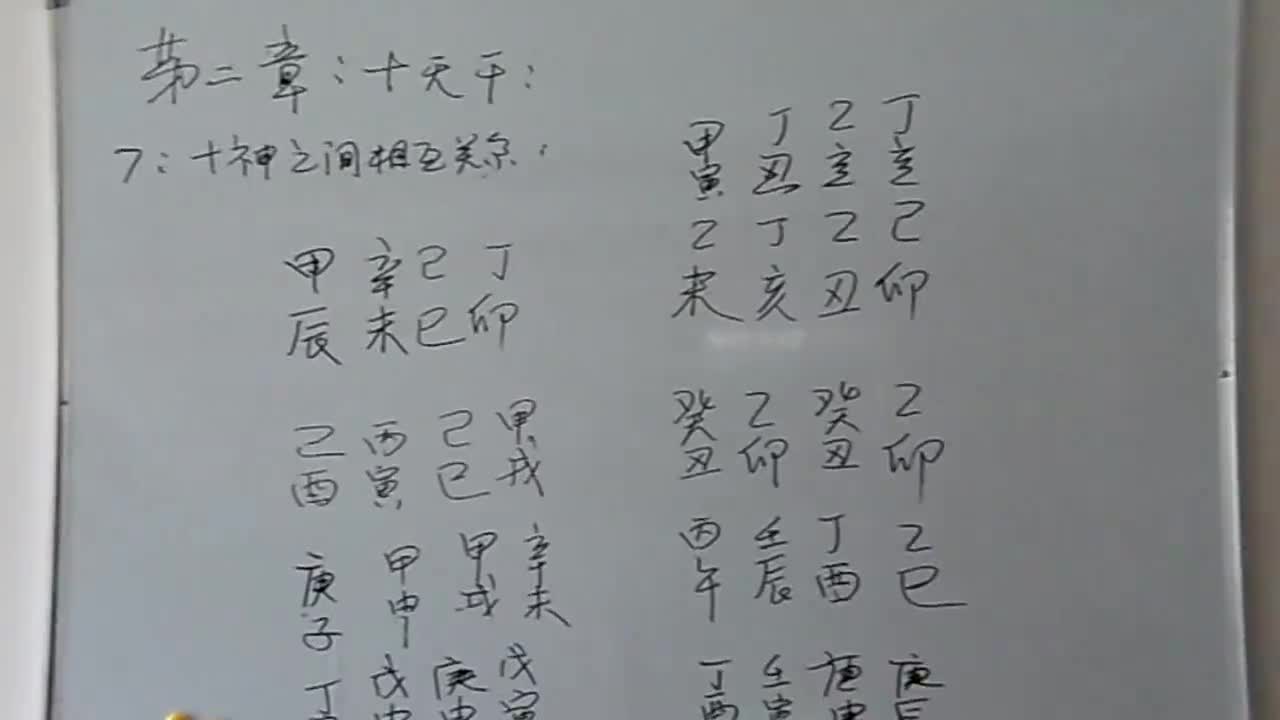 第二章：十天干：
7：十神之间相互关系：
甲 辛 己 丁
辰 未 巳 卯
己 丙 己 甲
酉 寅 巳 戌
庚 甲 甲 辛
子 申 戌 未
丁 戊 庚 戊
申 申 寅
甲 丁 乙 丁
寅 丑 亥 亥
乙 丁 乙 己
未 亥 丑 卯
癸 乙 癸 乙
丑 卯 丑 卯
丙 壬 丁 乙
午 辰 酉 巳
丁 壬 庚 庚
酉 寅 申 辰